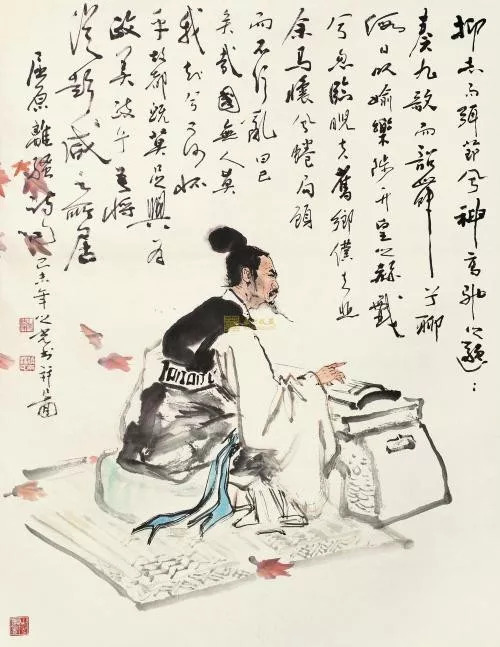 抑志而弭節兮神高馳之邈:
奏九歌而韶舞兮聊
假日以媮樂陟升皇之赫戲
兮忽臨睨夫舊鄉僕夫悲
余馬懷兮蜷局顧
而不行亂曰已
矣哉國無人莫
我知兮又何懷
乎故都既莫足與為
美政兮吾將
從彭咸之所居
屈原離騷詩句
己未年之光書